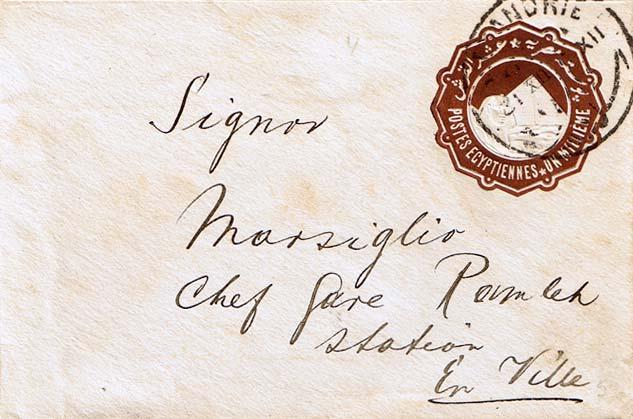 ANDRIE
XII
21 XII
POSTES EGYPTIENNES ★ UN MILLIEME
Signor
Marsiglio
Chef Gare Ramleh
station
En Ville